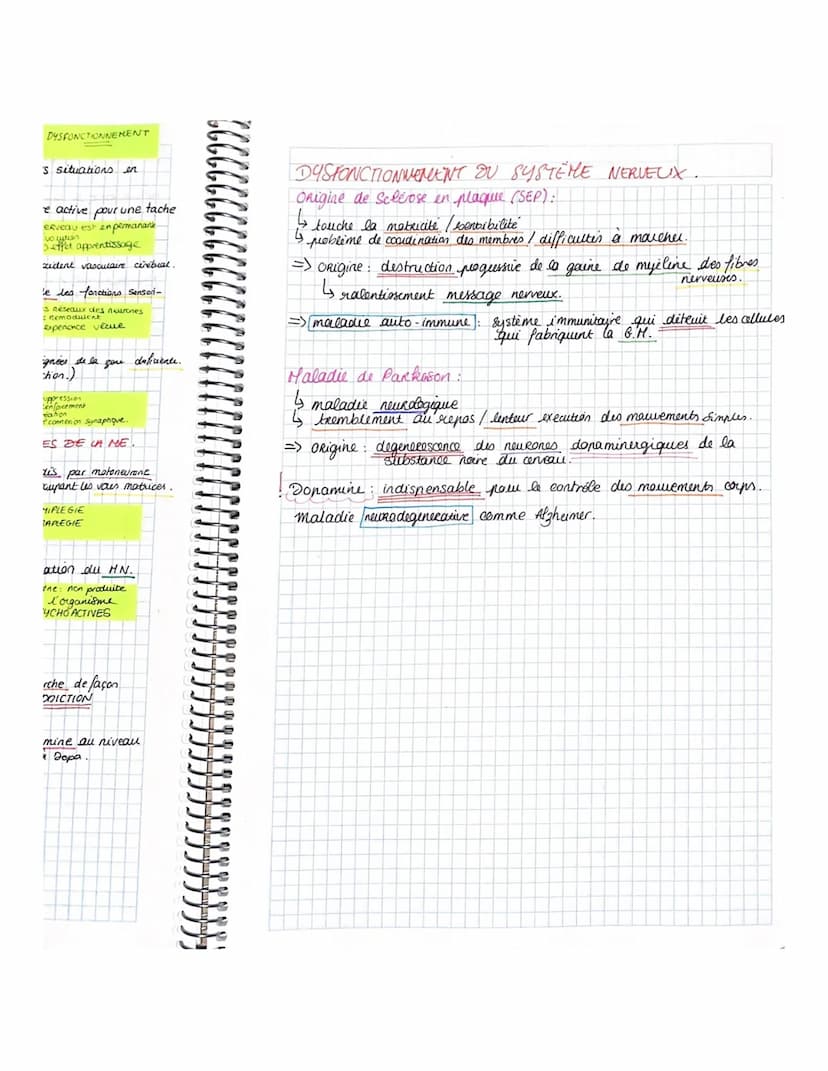 DYSFONCTIONNEMENT
s situations en
e active pour une tache
erveau est en permanane
volution
effet apprentissage
cident vasculaire cérébral.
le les fonctions sensori-
s réseaux des neurones
remodulent
expérience vécue
gnées de la
tion.)
suppression
renforcement
connexion synaptique.
ES DE LA ME.
par motoneurone
cupant les voies motrices.
MIPLEGIE
RAPLEGIE
ation du MN.
ène: non produite
l'organisme
YCHOACTIVES
rche de façon
DDICTION
mine au niveau
Dopa.
DYSFONCTIONNEMENT DU SYSTÈME NERVEUX.
Origine de Sclérose en plaque (SEP):
↳ touche la motricité / sensibilité
↳ problème de coordination des membres / difficultés à marcher.
=> origine: destruction progressive de la gaine de myéline des fibres
nerveuses.
↳ ralentissement message nerveux.
=> maladie auto-immune: système immunitaire qui détruit les cellules
qui fabriquent la G.M.
Maladie de Parkinson:
↳ maladie neurologique
↳ tremblement au repos / lenteur execution des mouvements simples.
=> origine: degenerescence des neurones dopaminergiques de la
substance noire du cerveau.
! Dopamine: indispensable pour le contrôle des mouvements corps.
Maladie neurodegenerative comme Alzheimer.